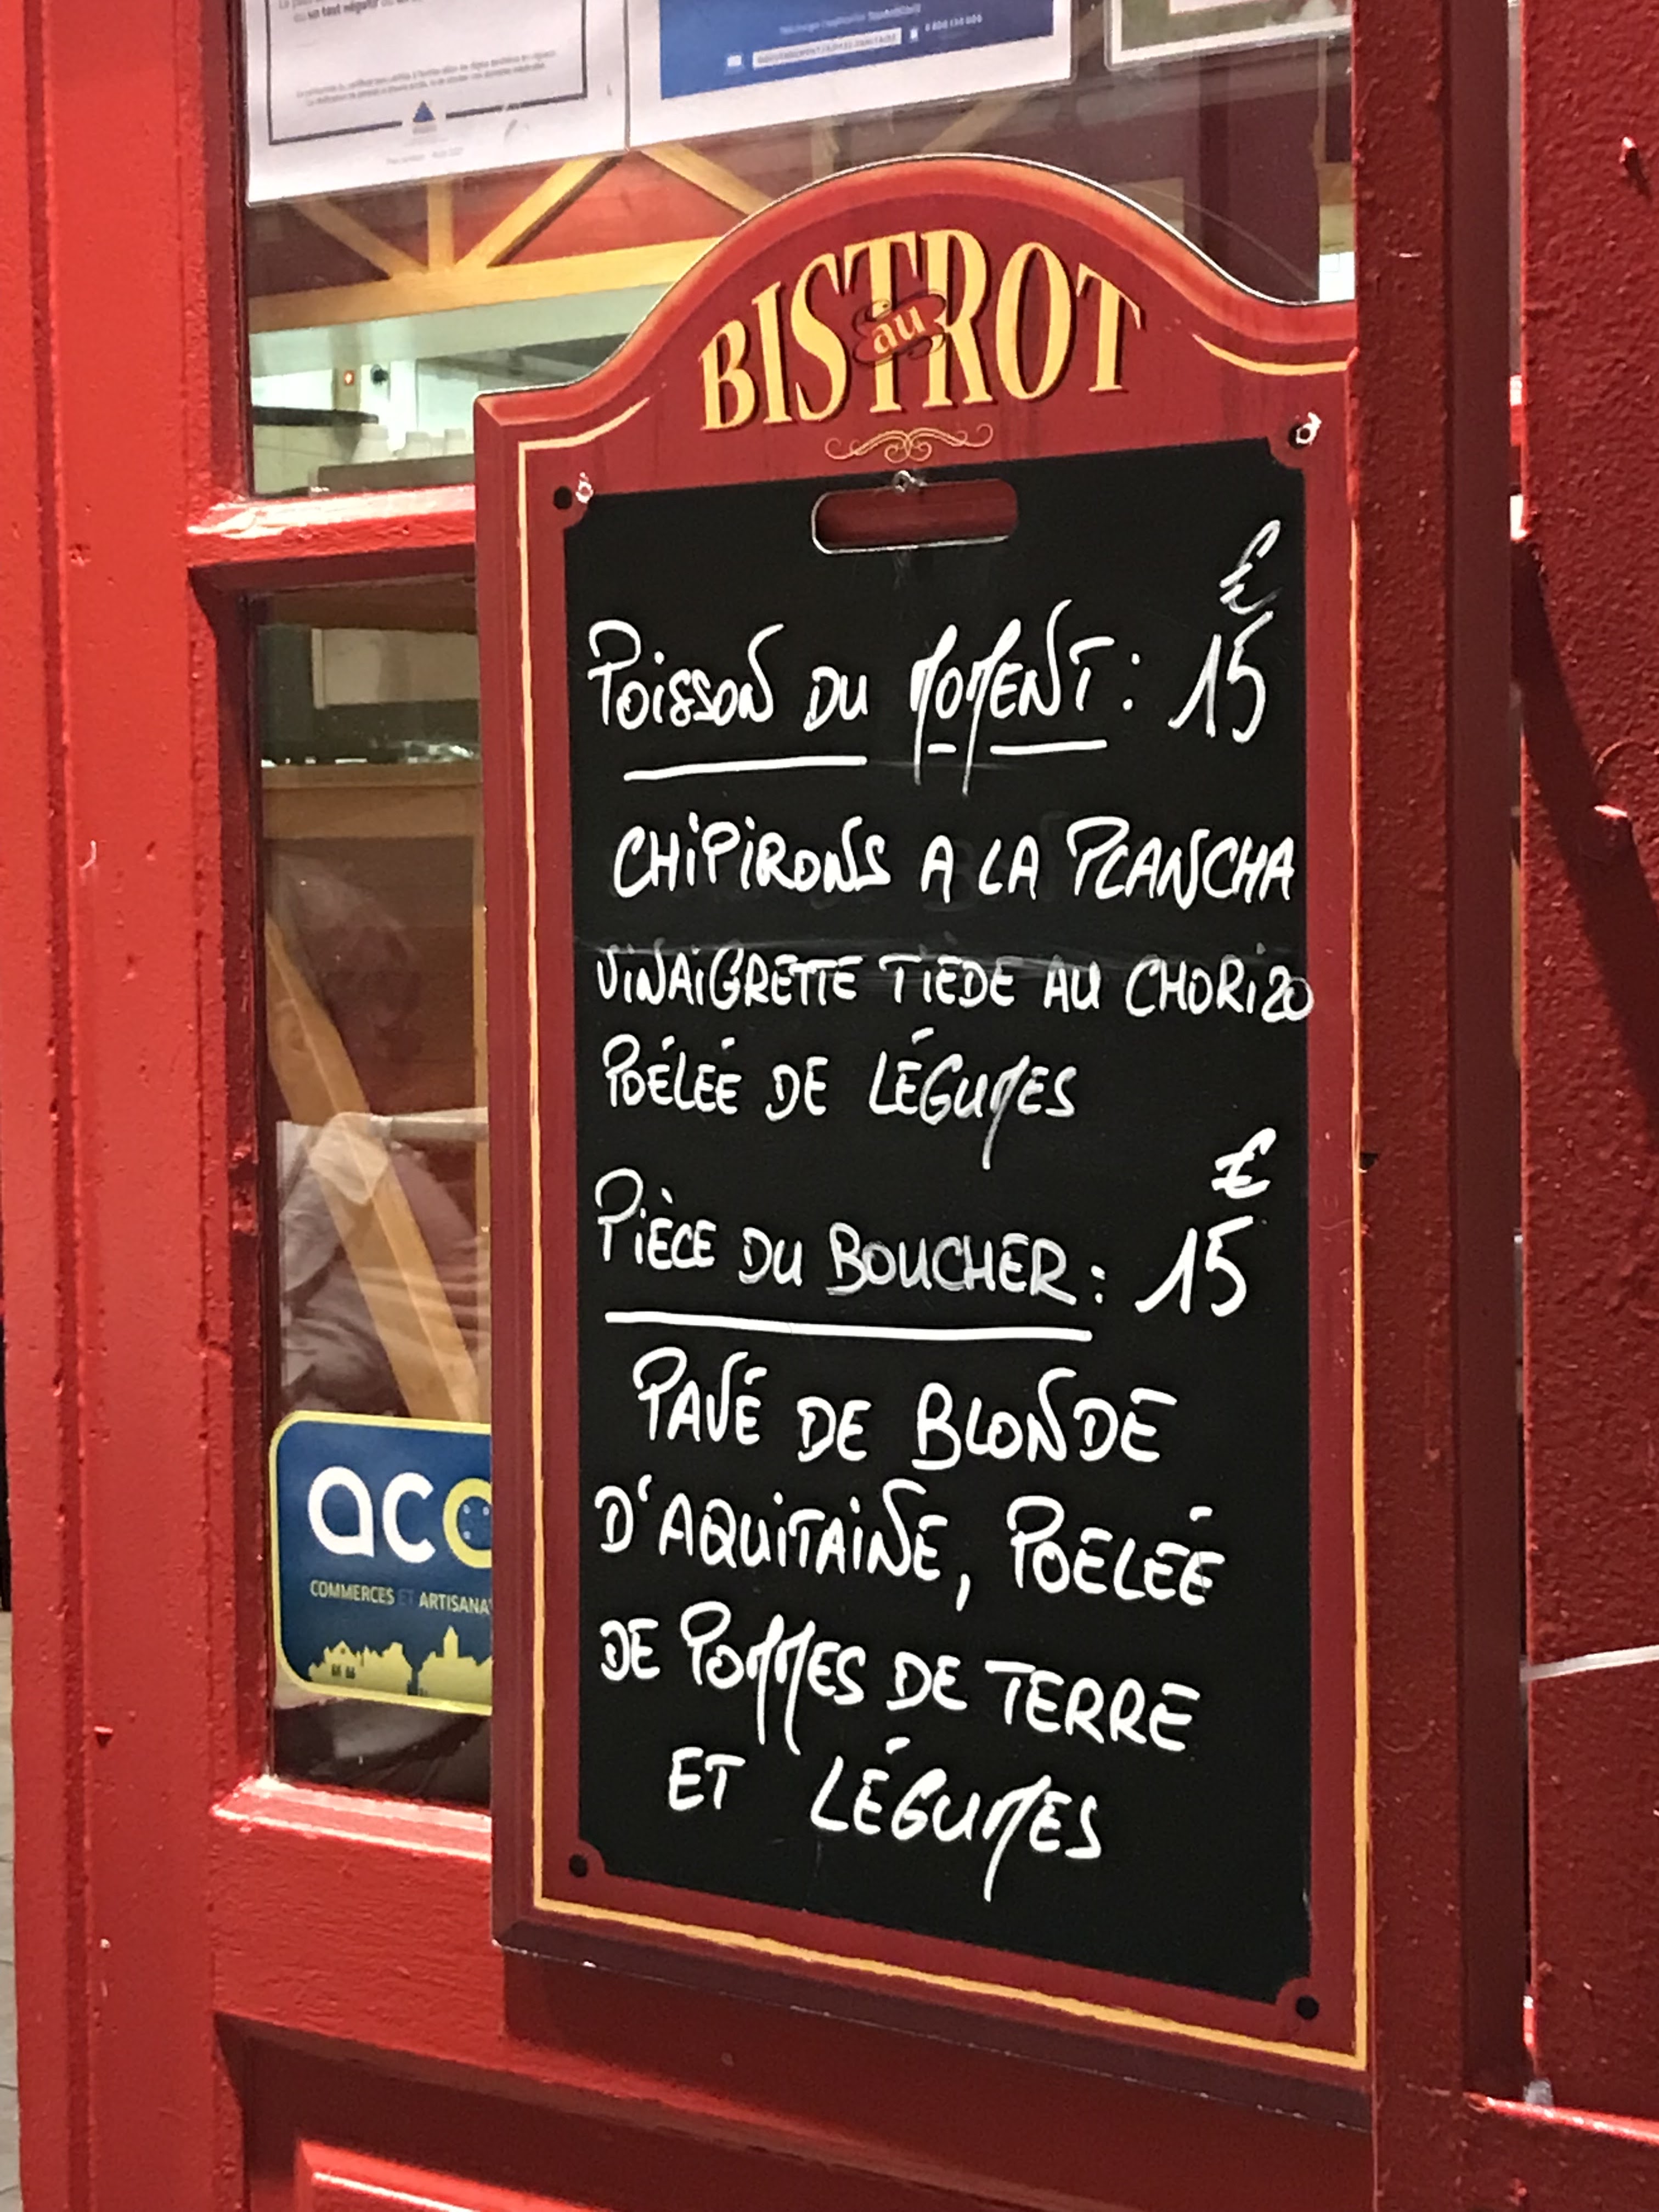 ou un tout négatif
BISTROT
au
€
Poisson DU MOMENT : 15
CHiPiRONS A LA PLANCHA
ViNAiGRETTE TiÈDE AU CHORiZO
POÉLÉE DE LÉGUMES
€
PiÈCE DU BOUCHER : 15
PAVÉ DE BLONDE
D'AQUiTAiNE, POELÉE
DE POMMES DE TERRE
ET LÉGUMES
aco
COMMERCES ET ARTISANA